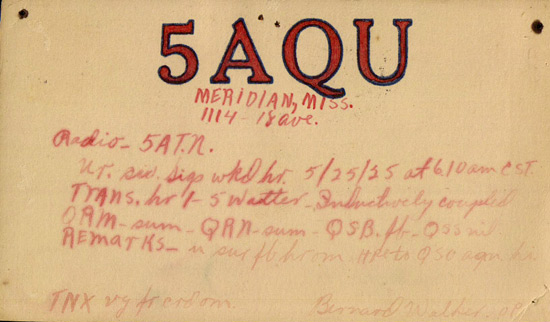 5AQU
MERIDIAN, MISS.
1114 - 18 ave.
Radio - 5AT.N.
Ur. siv. sigs wkd hr. 5/25/25 at 6.10 am CST.
TRANS. hr 1 - 5 watter - Inductively coupled
QRM - sum - QRN - sum - QSB. fb - QSS nil
REMARKS - u sur fb hr om HPE to QSO agn
TNX vy fr crd om.
Bernard Walker. OP